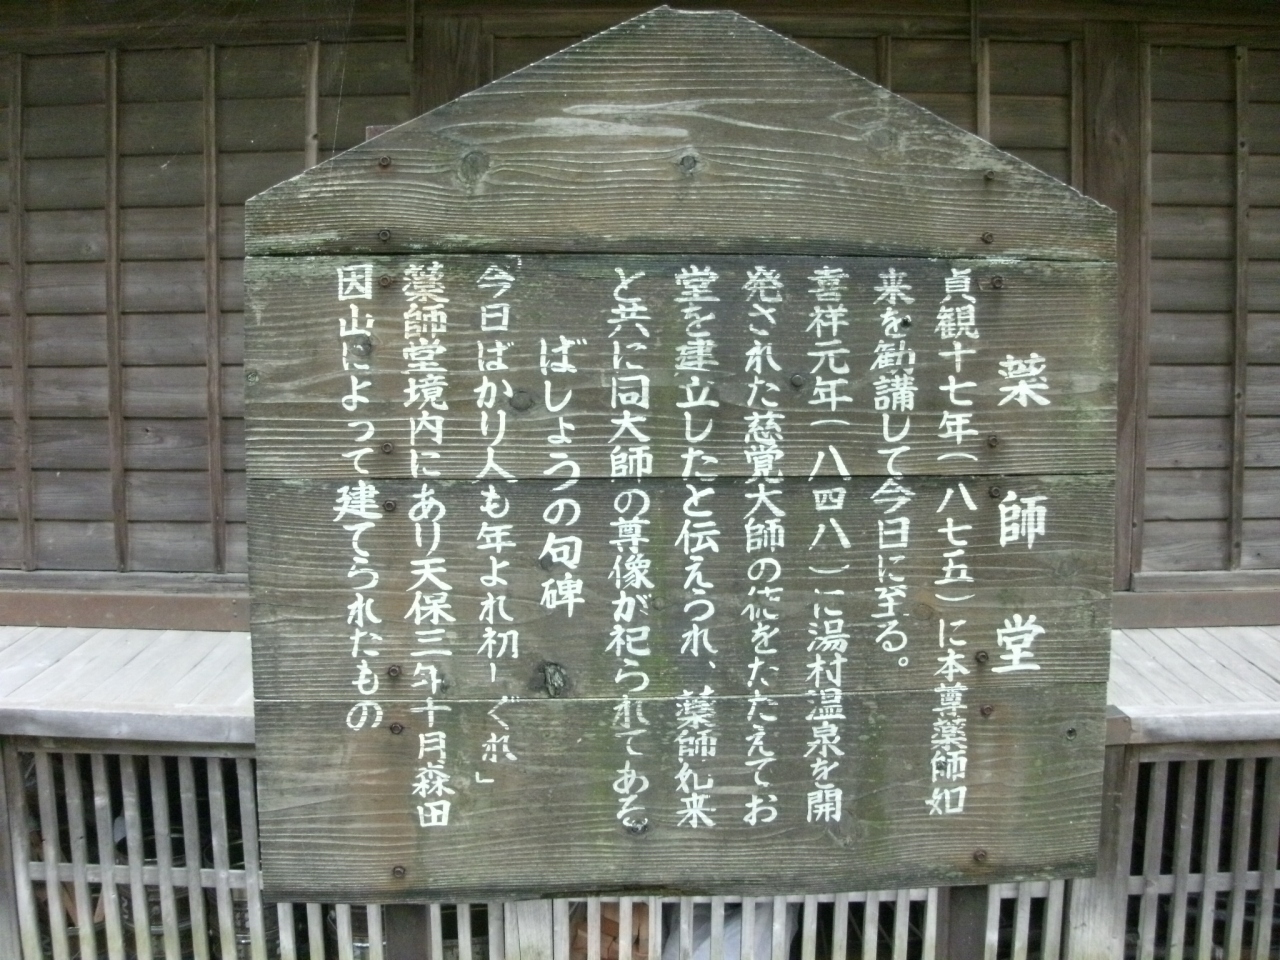 薬師堂
貞観十七年(八七五)に本尊薬師如
来を勧講して今日に至る。
喜祥元年(八四八)に湯村温泉を開
発された慈覚大師の徳をたたえてお
堂を建立したと伝えられ、薬師如来
と共に同大師の尊像が祀られてある
ばしょうの句碑
今日ばかり人も年よれ初しぐれ」
薬師堂境内にあり天保三年十月森田
因山によって建てられたもの